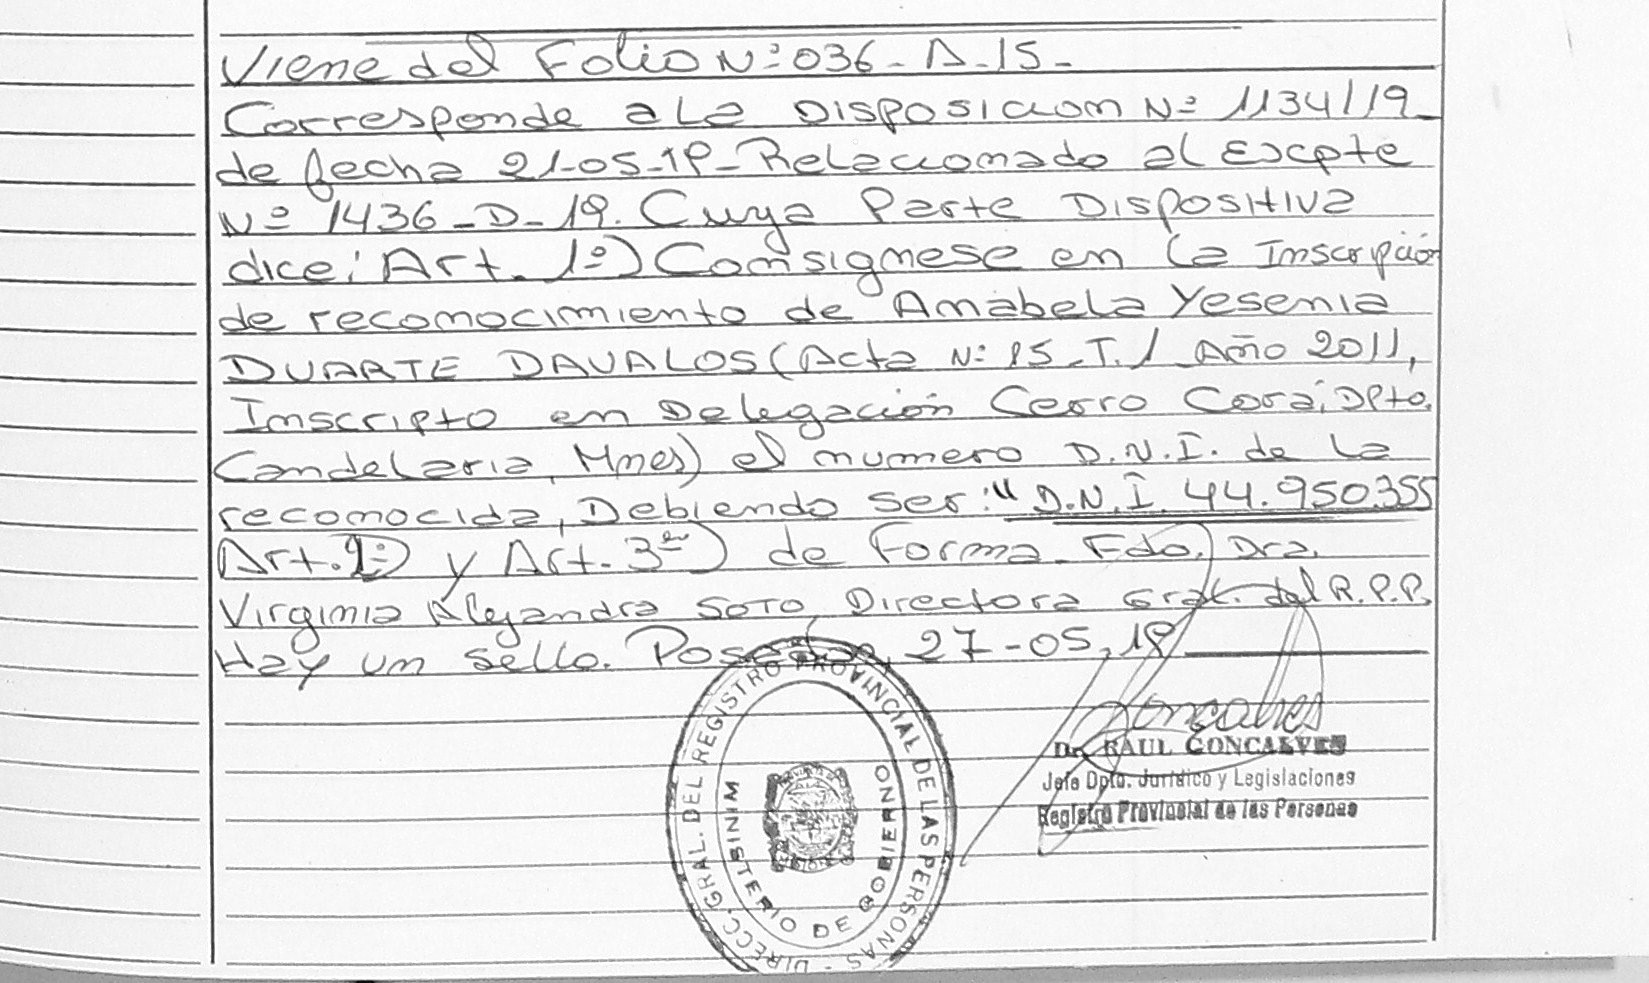 Viene del Folio Nº 036-A-15-
Corresponde a La Disposicion Nº 1134/19-
de fecha 21-05-19- Relacionado al Excpte
Nº 1436-D-19. Cuya Parte Dispositiva
dice: Art. 1º) Consignese en la Inscripción
de reconocimiento de Anabela Yesenia
DUARTE DAVALOS (Acta Nº 15-T.1 Año 2011,
Inscripto en Delegación Cerro Corá, Dpto.
Candelaria, Mnes) el numero D.N.I. de La
reconocida, Debiendo ser: "D.N.I. 44.950.355
Art. 2º) y Art. 3er) de Forma. Fdo. Dra.
Virginia Alejandra SOTO Directora Gral. del R.P.P.
Hay un sello. Posadas, 27-05-19
Goncalves
Dr. RAUL GONCALVES
Jefe Dpto. Jurídico y Legislaciones
Registro Provincial de las Personas
DIRECC. GRAL. DEL REGISTRO PROVINCIAL DE LAS PERSONAS -
MINISTERIO DE GOBIERNO